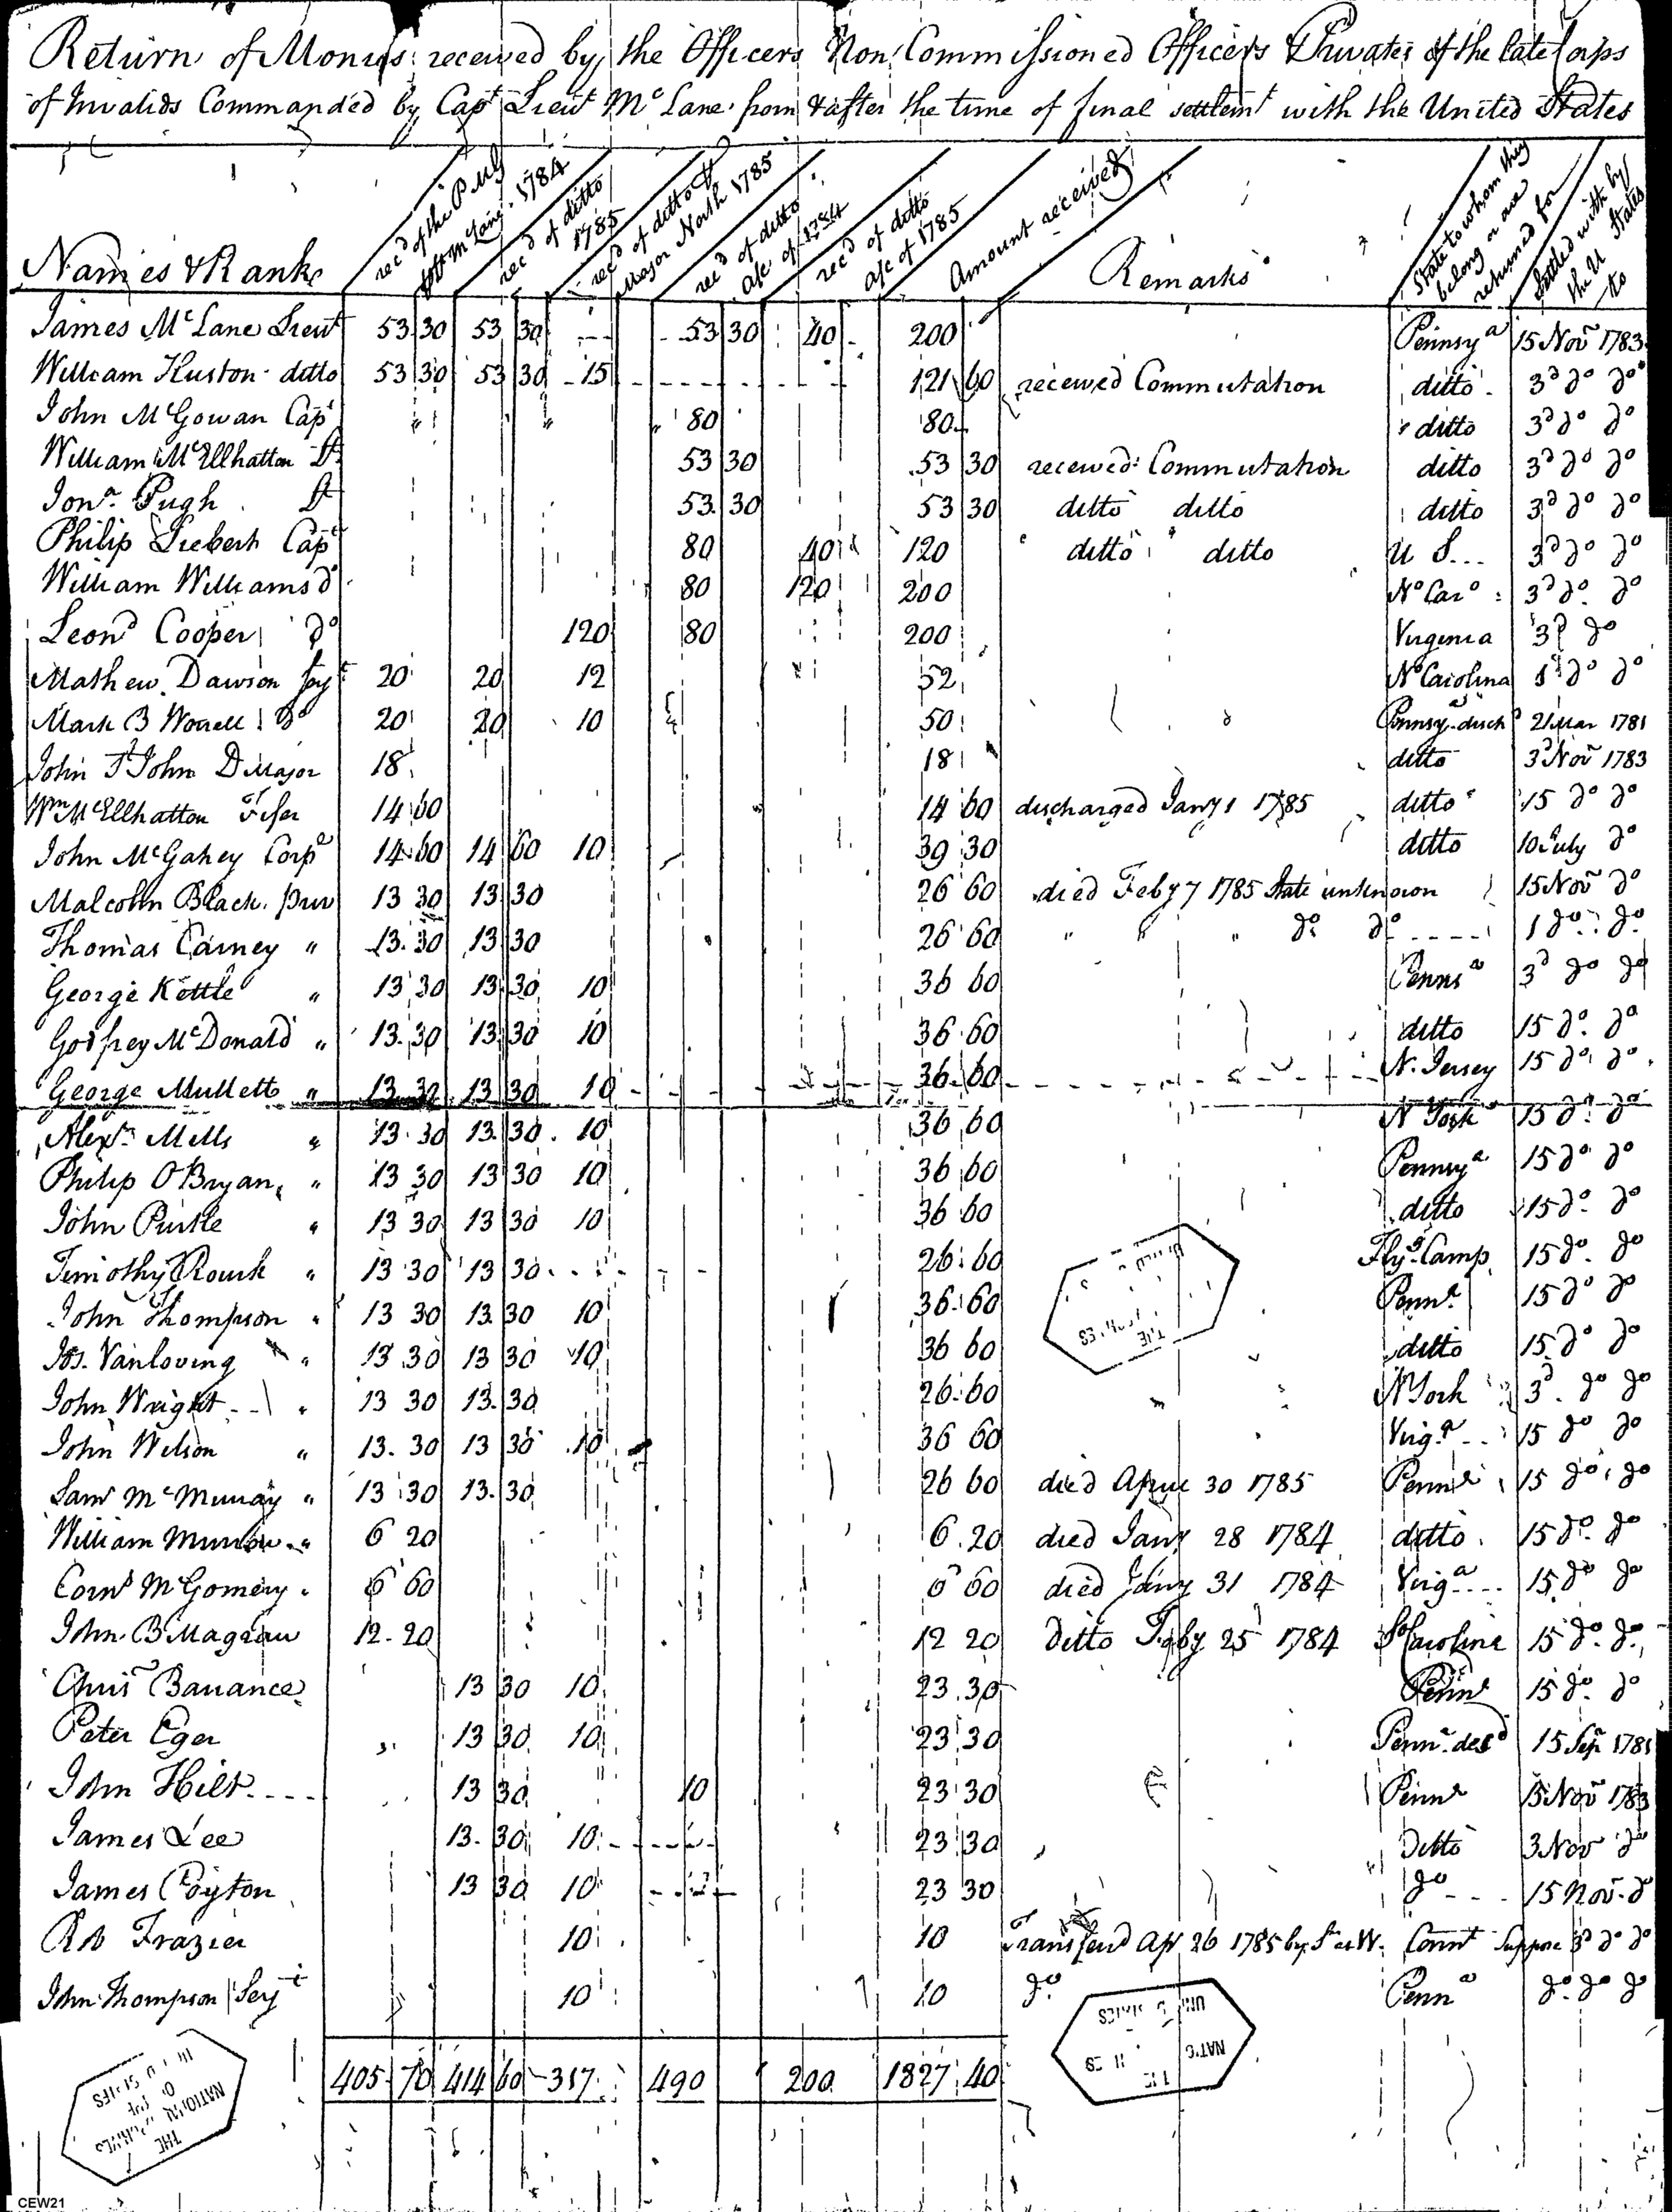 Return of Monies received by the Officers Non Commissioned Officers & Privates of the late Corps
of Invalids Commanded by Capt Lieut McLane from & after the time of final settlemt with the United States
Names & Rank
recd of the PMG
1784
recd of ditto
1785
recd of ditto &
Major North 1785
recd of ditto
a/c of 1784
recd of ditto
a/c of 1785
Amount received
Remarks
State to whom they
belong or are
returned for
Settled with by
the U States
to
James McLane Lieut 53 30 53 30 53 30 40 200 Pennsya 15 Novr 1783
William Huston ditto 53 30 53 30 15 121 60 received Commutation ditto 3d do do
John McGowan Capt " " " 80 80 ditto 3d do do
William McElhatton Lt 53 30 53 30 received Commutation ditto 3d do do
Jona. Pugh Lt 53 30 53 30 ditto ditto ditto 3d do do
Philip Liebert Capt 80 40 120 ditto ditto U S... 3d do do
William Williams do 80 120 200 No Caro 3d do do
Leond Cooper do 120 80 200 Virginia 3d do
Mathew Dawson Sejt 20 20 12 52 No Carolina 1st do do
Mark B Worrell do 20 20 10 50 Pennsya disch 21 Mar 1781
John St John D Major 18 18 ditto 3d Novr 1783
Wm McElhatton Fifer 14 60 14 60 discharged Jany 1 1785 ditto 15 do do
John McGahey Corpl 14 60 14 60 10 39 30 ditto 10 July do
Malcolm Black priv 13 30 13 30 26 60 died Feby 7 1785 State unknown 15 Novr do
Thomas Carney " 13 30 13 30 26 60 " " " do do 1 do do
George Kettle " 13 30 13 30 10 36 60 Penna 3d do do
Godfrey McDonald " 13 30 13 30 10 36 60 ditto 15 do do
George Mulletts " 13 30 13 30 10 36 60 N. Jersey 15 do do
Alexr Mells " 13 30 13 30 10 36 60 N York 15 do do
Philip O'Bryan " 13 30 13 30 10 36 60 Pennsya 15 do do
John Purtle " 13 30 13 30 10 36 60 ditto 15 do do
Timothy Rourk " 13 30 13 30 26 60 Flyg Camp 15 do do
John Thompson " 13 30 13 30 10 36 60 Penna 15 do do
Jos. Vanloving " 13 30 13 30 10 36 60 ditto 15 do do
John Wright " 13 30 13 30 26 60 N York 3d do do
John Wilson " 13 30 13 30 10 36 60 Virga 15 do do
Saml McMurray " 13 30 13 30 26 60 died April 30 1785 Penna 15 do do
William " 6 20 6 20 died Jany 28 1784 ditto 15 do do
Corns McGomery " 6 60 6 60 died Jany 31 1784 Virga 15 do do
John B Magraw 12 20 12 20 Ditto Feby 25 1784 So Carolina 15 do do
Chrisr Banance 13 30 10 23 30 Penna 15 do do
Peter Eger 13 30 10 23 30 Penna desd 15 Sepr 1781
John Hilt 13 30 10 23 30 Penna 15 Novr 1783
James Lee 13 30 10 23 30 Ditto 3 Nov do
James Poyton 13 30 10 23 30 do 15 Novr do
Frazier 10 10 Transferd Apr 26 1785 by S at W. Connt Suppose 3d do do
John Thompson Serjt 10 10 do Penna do do do
405 70 414 60 317 490 200 1827 40
THE
NATIONAL
CEW21